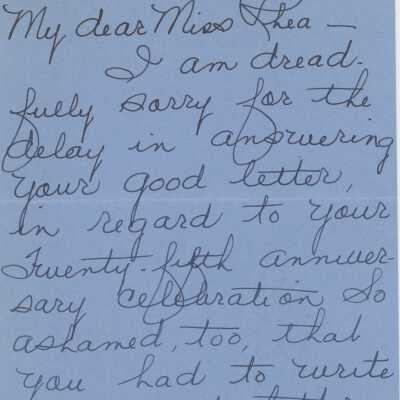 My dear Miss Rhea —
I am dread-
fully sorry for the
delay in answering
your good letter,
in regard to your
Twenty-fifth anniver-
sary celebration So
ashamed, too, that
you had to write